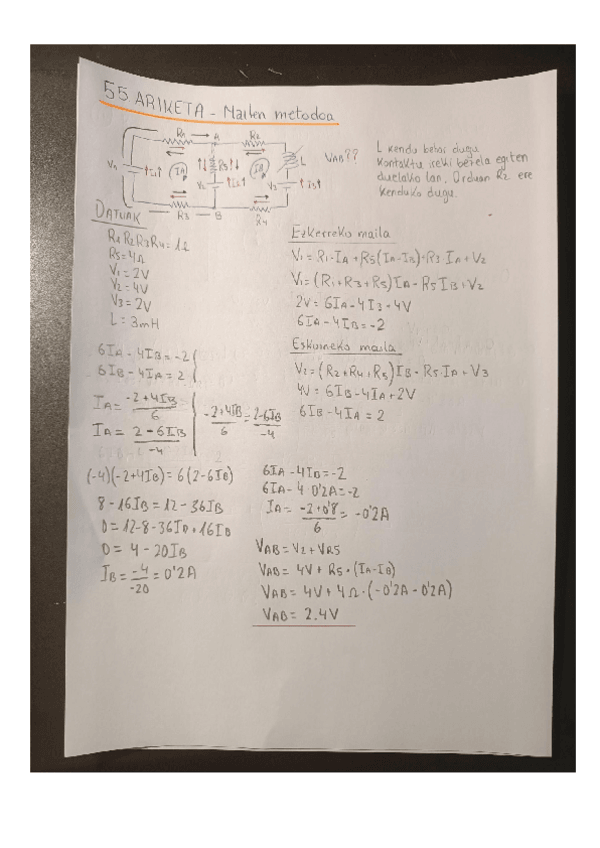 55 ARIKETA - Mailen metodoa
R1 A R2
V1 I1 IA R5 IB L VAB??
V2 I2 V3 I3
R3 B R4
L kendu behar dugu
kontaktu ireki bezela egiten
duelako lan. Orduan R2 ere
kenduko dugu.
DATUAK
R1 R2 R3 R4 = 1Ω
R5 = 4Ω
V1 = 2V
V2 = 4V
V3 = 2V
L = 3mH
Ezkerreko maila
V1 = R1·IA + R5(IA-IB)+R3 IA + V2
V1 = (R1+R3+R5)IA - R5 IB + V2
2V = 6IA - 4IB + 4V
6IA - 4IB = -2
Eskuineko maila
V2 = (R2+R4+R5)IB - R5·IA + V3
4V = 6IB - 4IA + 2V
6IB - 4IA = 2
6IA - 4IB = -2
6IB - 4IA = 2
IA = -2+4IB / 6
IA = 2-6IB / -4
-2+4IB / 6 = 2-6IB / -4
(-4)(-2+4IB) = 6(2-6IB)
8-16IB = 12-36IB
0 = 12-8-36IB+16IB
0 = 4-20IB
IB = -4 / -20 = 0'2A
6IA - 4IB = -2
6IA - 4 0'2A = -2
IA = -2+0'8 / 6 = -0'2A
VAB = V2 + VR5
VAB = 4V + R5·(IA-IB)
VAB = 4V + 4Ω·(-0'2A-0'2A)
VAB = 2.4V